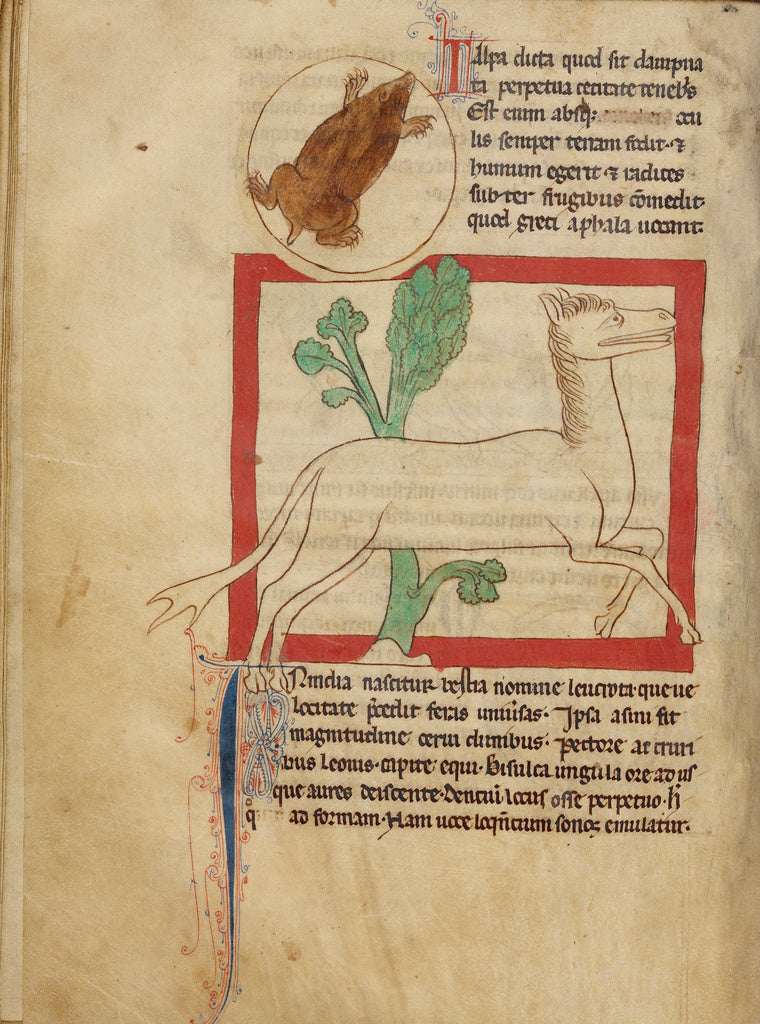 Talpa dicta quod sit dampna
ta perpetua cecitate tenebs
Est enim absq; ocu
lis semper terram fodit ⁊
humum egerit ⁊ radices
subter frugibus cōmedit
quod greci aphala uocant.
INindia nascitur bestia nomine leucrota que ue
locitate p̄cedit feras uniũsas. Ipsa asini fit
magnitudine cerui clunibus. Pectore ac cruri
bus leonis. capite equi. Bisulca ungula ore ad us
que aures deiscente. Dentiũ locus osse perpetuo. h̄
q ad formam. Nam uoce loq̄ntium sonos emulatur.